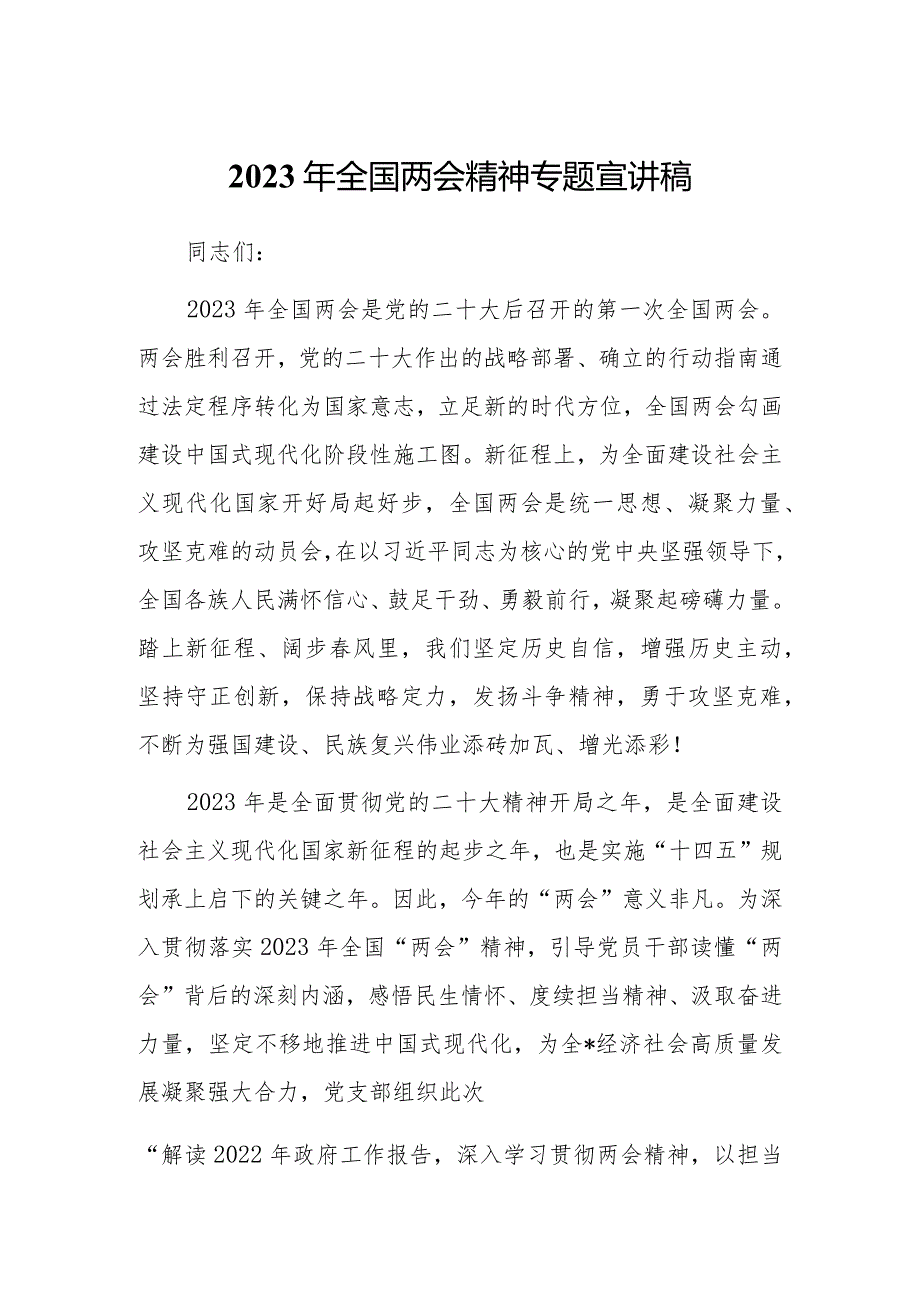 2023年全国两会精神专题宣讲稿
同志们：
2023年全国两会是党的二十大后召开的第一次全国两会。
两会胜利召开，党的二十大作出的战略部署、确立的行动指南通
过法定程序转化为国家意志，立足新的时代方位，全国两会勾画
建设中国式现代化阶段性施工图。新征程上，为全面建设社会主
义现代化国家开好局起好步，全国两会是统一思想、凝聚力量、
攻坚克难的动员会，在以习近平同志为核心的党中央坚强领导下，
全国各族人民满怀信心、鼓足干劲、勇毅前行，凝聚起磅礴力量。
踏上新征程、阔步春风里，我们坚定历史自信，增强历史主动，
坚持守正创新，保持战略定力，发扬斗争精神，勇于攻坚克难，
不断为强国建设、民族复兴伟业添砖加瓦、增光添彩！
2023年是全面贯彻党的二十大精神开局之年，是全面建设
社会主义现代化国家新征程的起步之年，也是实施“十四五”规
划承上启下的关键之年。因此，今年的“两会”意义非凡。为深
入贯彻落实2023年全国“两会”精神，引导党员干部读懂“两
会”背后的深刻内涵，感悟民生情怀、度续担当精神、汲取奋进
力量，坚定不移地推进中国式现代化，为全*经济社会高质量发
展凝聚强大合力，党支部组织此次
“解读2022年政府工作报告，深入学习贯彻两会精神，以担当